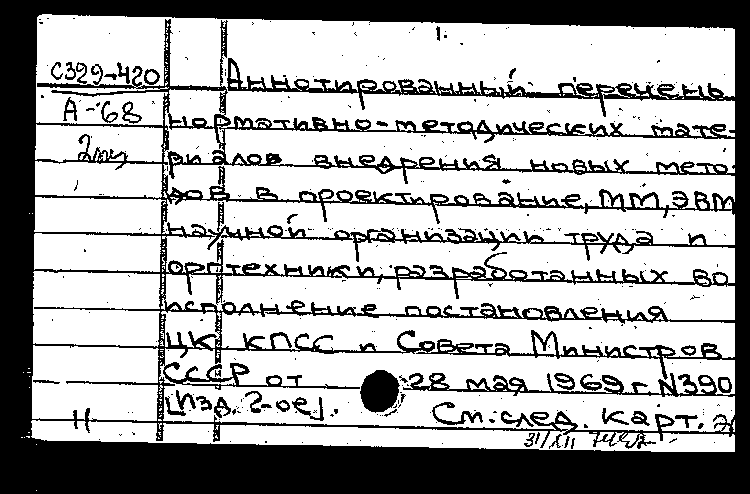 1.
С329-420 Аннотированный перечень
А-68 нормативно-методических мате-
2 экз риалов внедрения новых мето-
дов в проектирование, ММ, ЭВМ
научной организации труда и
оргтехники, разработанных во
исполнение постановления
ЦК КПСС и Совета Министров
СССР от 28 мая 1969 г. N390
[Изд. 2-ое].
11 См. след. карт.
31/XII